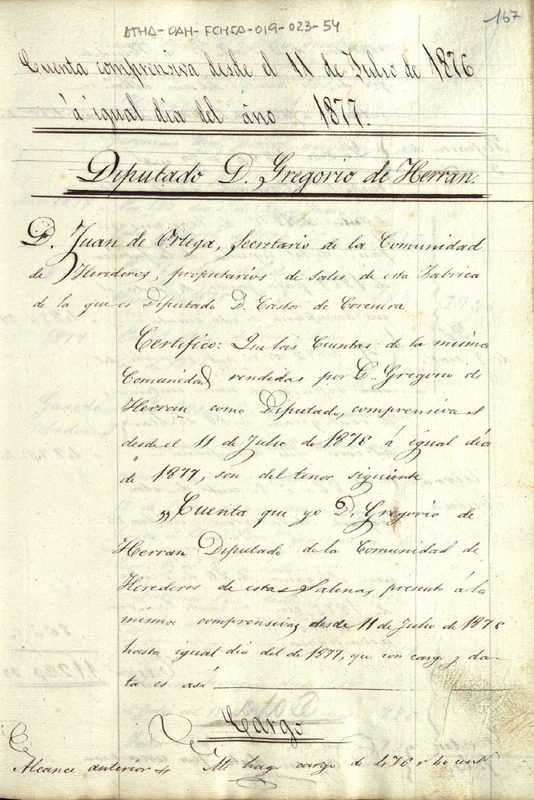 ATHA-DAH-FCHSA-019-023-54
167
Cuenta comprensiva desde el 11 de Julio de 1876
á igual dia del año 1877.
Diputado D. Gregorio de Herran.
D. Juan de Ortega, Secretario de la Comunidad
de Herederos, propietarios de sales de esta Fabrica
de la que es Diputado D. Castor de
Certifico: Que las Cuentas de la misma
Comunidad rendidas por D. Gregorio de
Herran como Diputado, comprensivas
desde el 11 de Julio de 1876 á igual dia
de 1877, son del tenor siguiente
"Cuenta que yo D. Gregorio de
Herran Diputado de la Comunidad de
Herederos de estas Salinas, presento á la
misma comprensiva desde 11 de Julio de 1876
hasta igual dia del de 1877, que con cargo y da-
ta es así
Cargo
Alcance anterior Me hago cargo de 476 r 40 cent